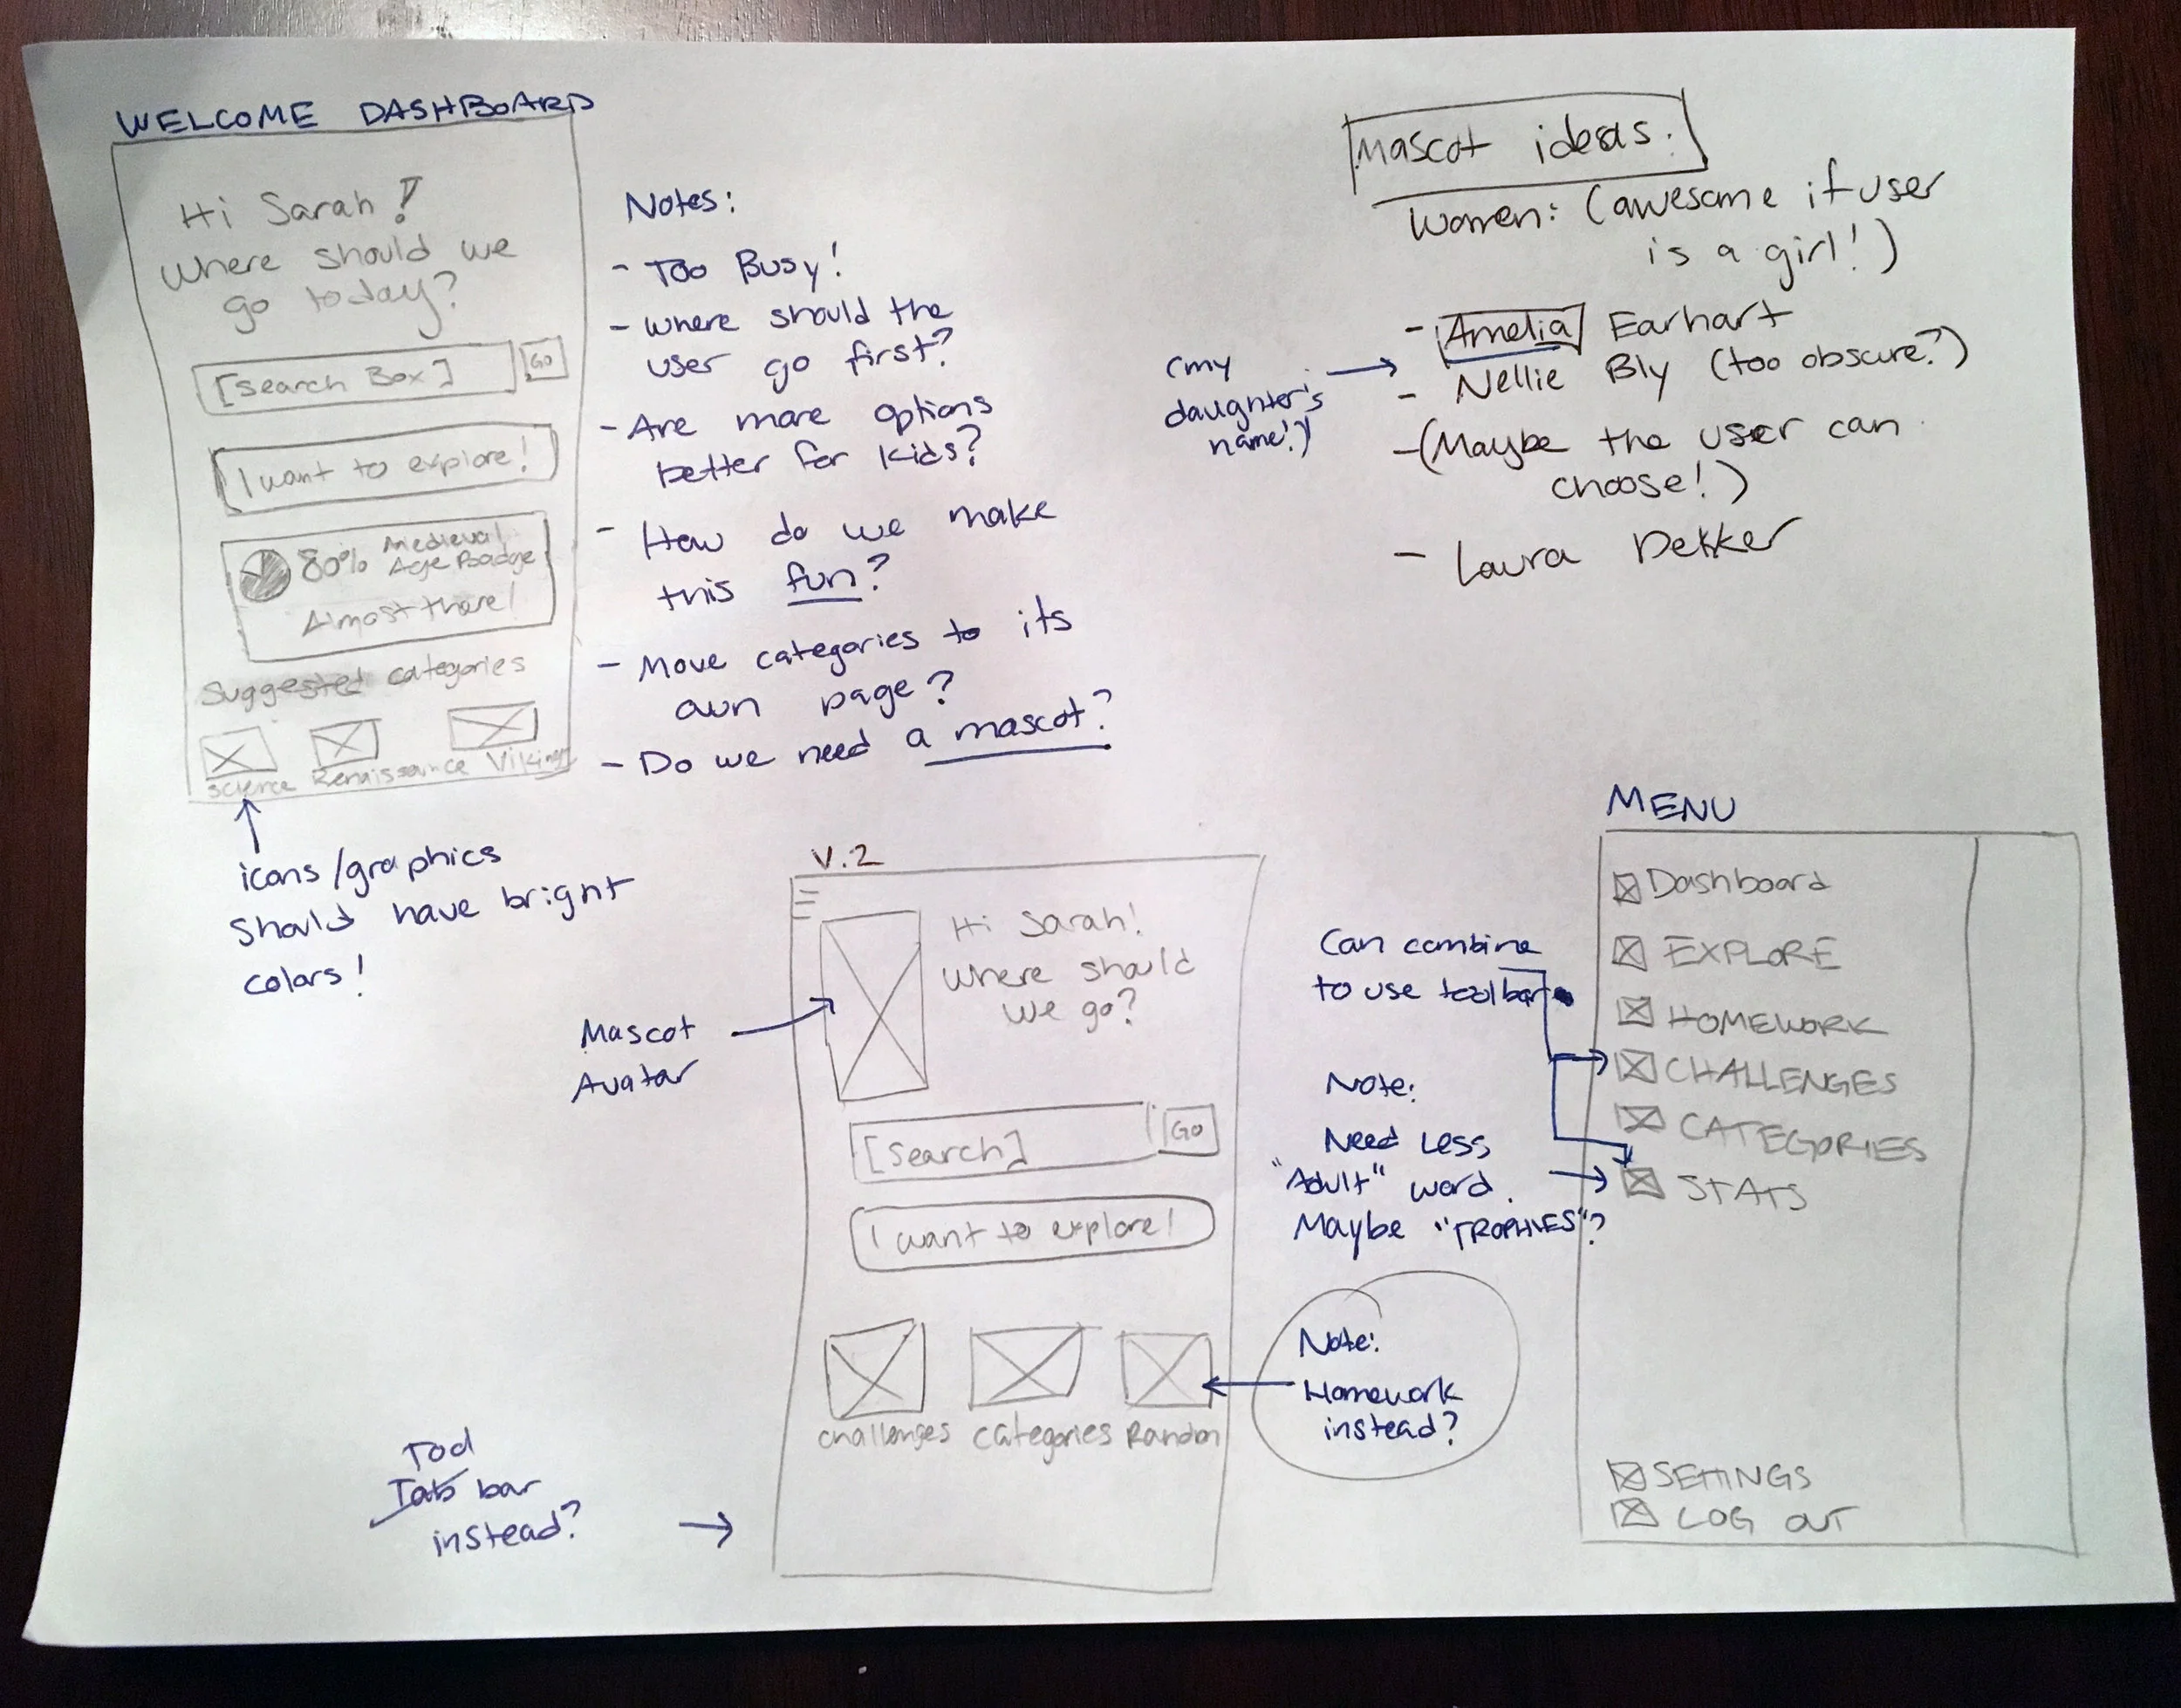 WELCOME DASHBOARD
Hi Sarah!
Where should we
go today?
[Search Box]
GO
I want to explore!
80% Medieval
Age Badge
Almost there!
Suggested categories
Science Renaissance Vikings
icons/graphics
should have bright
colors!
Notes:
- Too Busy!
- Where should the
user go first?
- Are more options
better for kids?
- How do we make
this fun?
- Move categories to its
own page?
- Do we need a mascot?
Mascot ideas:
Women: (awesome if user
is a girl!)
- Amelia Earhart
(my
daughter's
name!)
- Nellie Bly (too obscure?)
- (Maybe the user can
choose!)
- Laura Dekker
V.2
Hi Sarah!
Where should
we go?
Mascot
Avatar
[Search]
GO
I want to explore!
Challenges Categories Random
Note:
Homework
instead?
Tool
Tab bar
instead?
MENU
Dashboard
EXPLORE
HOMEWORK
CHALLENGES
CATEGORIES
STATS
SETTINGS
LOG OUT
Can combine
to use toolbar
Note:
Need Less
"Adult" word.
Maybe "TROPHIES"?